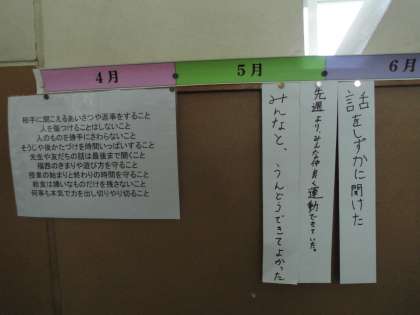 4月
5月
6月
相手に聞こえるあいさつや返事をすること
人を傷つけることはしないこと
人のものを勝手にさわらないこと
そうじや後かたづけを時間いっぱいすること
先生や友だちの話は最後まで聞くこと
種週のきまりや遊び方を守ること
授業の始まりと終わりの時間を守ること
給食は嫌いなものだけを残さないこと
何事も本気で力を出し切りやり切ること
話をしずかに聞けた
先週より、みんな仲良く運動できていた。
みんなと、うんどうできてよかった